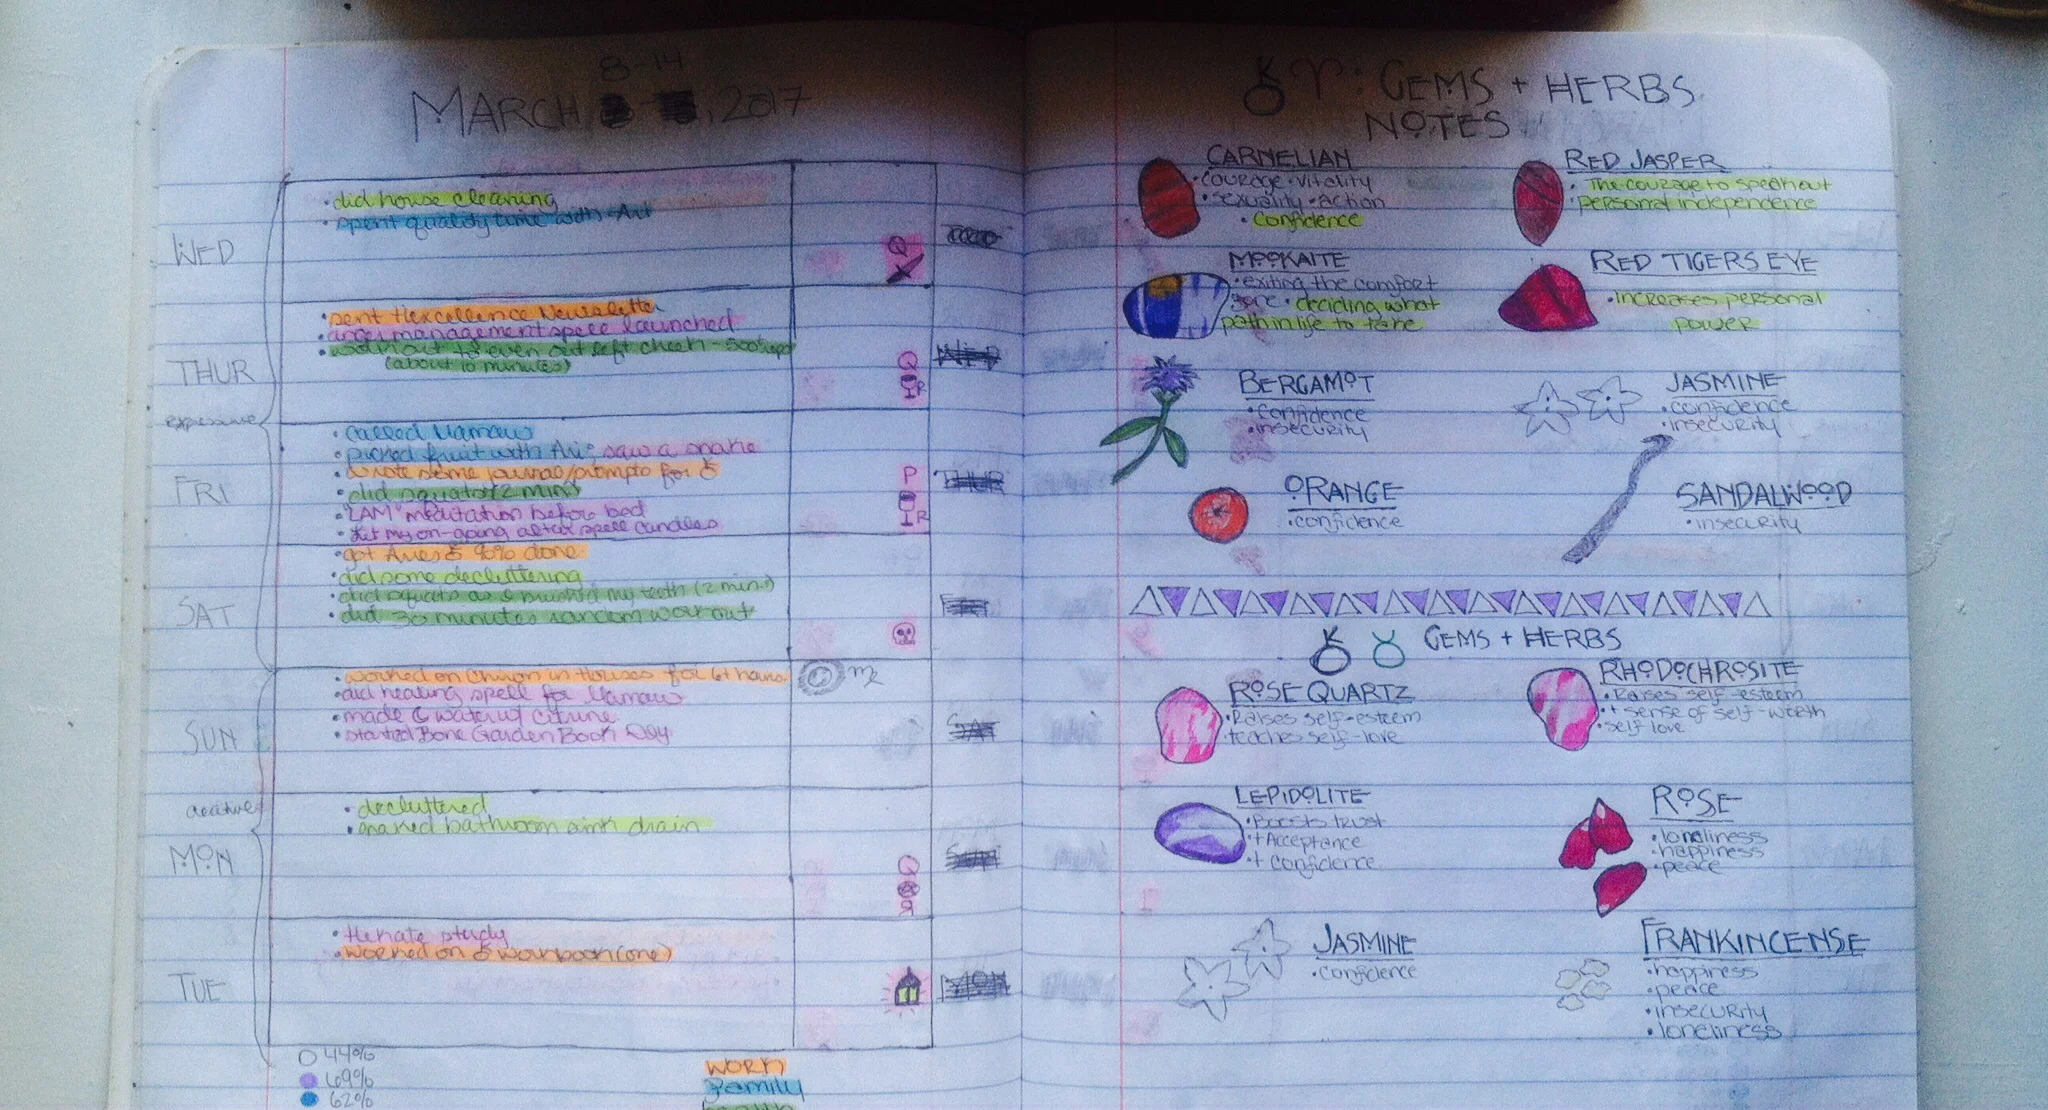 8-14
MARCH , 2017
WED
• did house cleaning
• spent quality time with Ari
Q
THUR
• sent Hexcellence Newsletter
• anger management spell launched
• workout to even out left cheek - 500 reps
(about 10 minutes)
Q
R
WED
expressive
FRI
• called Mamaw
• picked fruit with Ari, saw a snake
• wrote some journal prompts for
• did squats (2 min)
• "LAM" meditation before bed
• lit my on-going altar spell candles
P
R
THUR
SAT
• got Aries 90% done
• did some decluttering
• did squats as I brushed my teeth (2 min.)
• did 30 minutes random workout
FRI
SUN
• worked on Chiron in Houses for 6+ hours
• did healing spell for Mamaw
• made water w/ citrine
• started Bone Garden Book Day
SAT
MON
• decluttered
• snaked bathroom sink drain
Q
R
SUN
TUE
• Hekate study
• worked on workbook (one)
MON
44%
69%
62%
WORK
Family
health
: GEMS + HERBS
NOTES
CARNELIAN
• courage • vitality
• sexuality • action
• confidence
RED JASPER
• The courage to speak out
• personal independence
MOOKAITE
• exiting the comfort
zone • deciding what
path in life to take
RED TIGERS EYE
• increases personal
power
BERGAMOT
• confidence
• insecurity
JASMINE
• confidence
• insecurity
ORANGE
• confidence
SANDALWOOD
• insecurity
GEMS + HERBS
ROSE QUARTZ
• Raises self-esteem
• teaches self-love
RHODOCHROSITE
• Raises self-esteem
• + sense of self-worth
• self love
LEPIDOLITE
• Boosts trust
• + Acceptance
• + Confidence
ROSE
• loneliness
• happiness
• peace
JASMINE
• confidence
FRANKINCENSE
• happiness
• peace
• insecurity
• loneliness